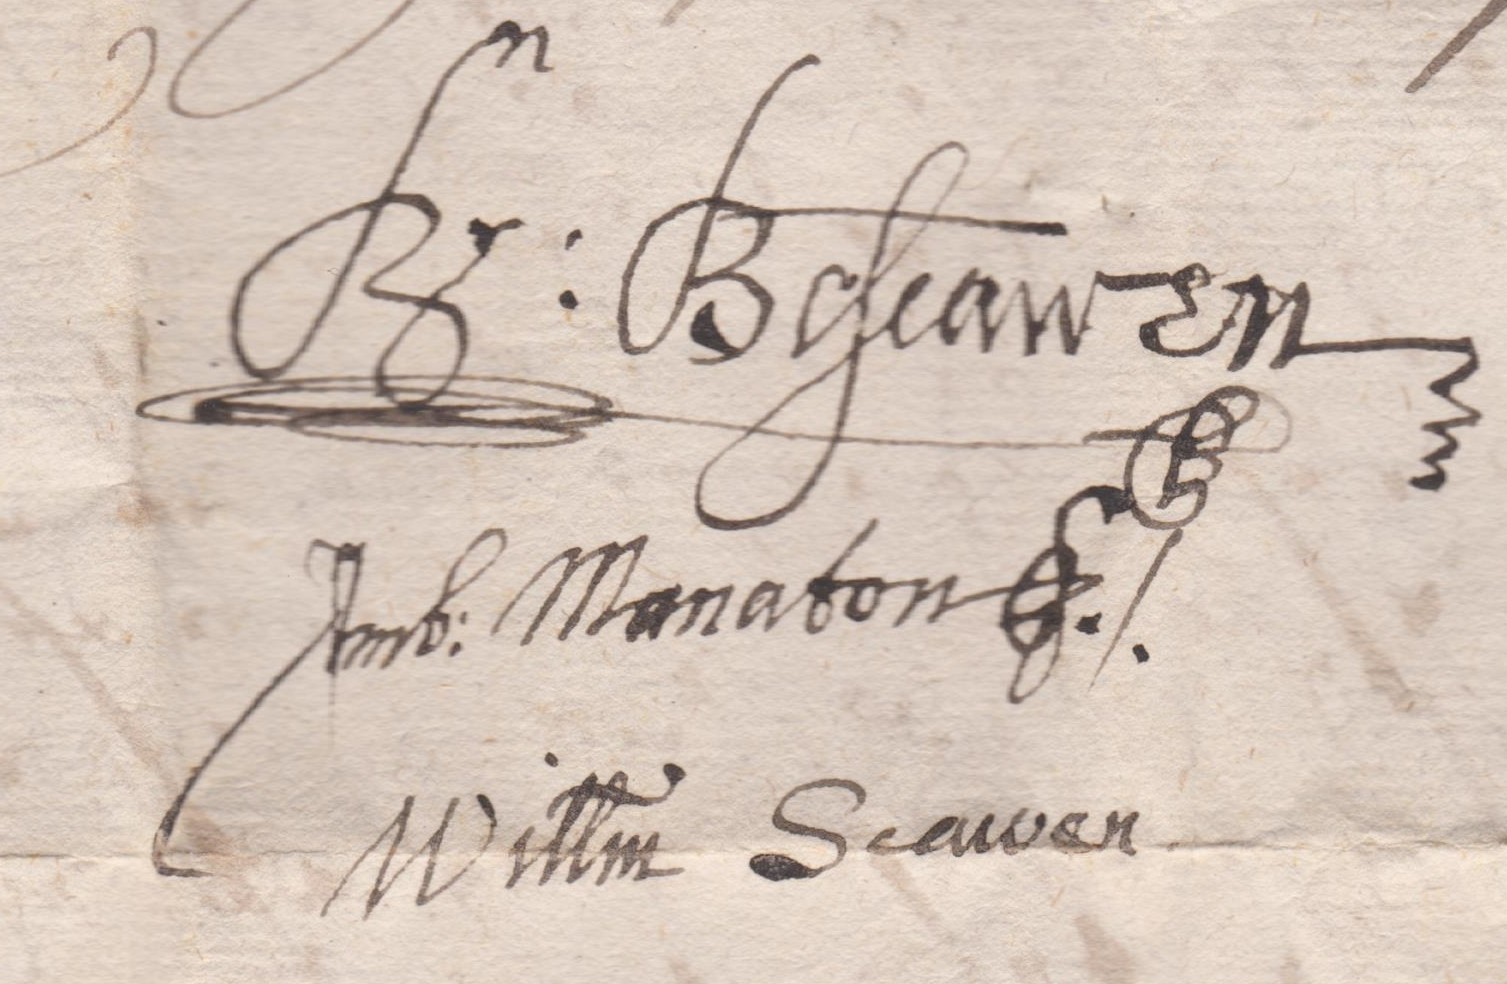 Br: Boscawen
Amb: Manaton
Willm Scawen